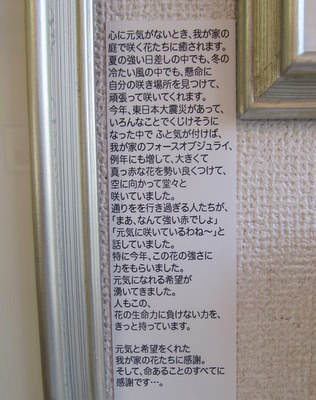 心に元気がないとき、我が家の
庭で咲く花たちに癒されます。
夏の強い日差しの中でも、冬の
冷たい風の中でも、懸命に
自分の咲き場所を見つけて、
頑張って咲いてくれます。
今年、東日本大震災があって、
いろんなことでくじけそうに
なった中で ふと気が付けば、
我が家のフォースオブジュライ、
例年にも増して、大きくて
真っ赤な花を勢い良くつけて、
空に向かって堂々と
咲いていました。
通りをを行き過ぎる人たちが、
「まあ、なんて強い赤でしょ」
「元気に咲いているわね～」と
話していました。
特に今年、この花の強さに
力をもらいました。
元気になれる希望が
湧いてきました。
人もこの、
花の生命力に負けない力を、
きっと持っています。
元気と希望をくれた
我が家の花たちに感謝。
そして、命あることのすべてに
感謝です…。